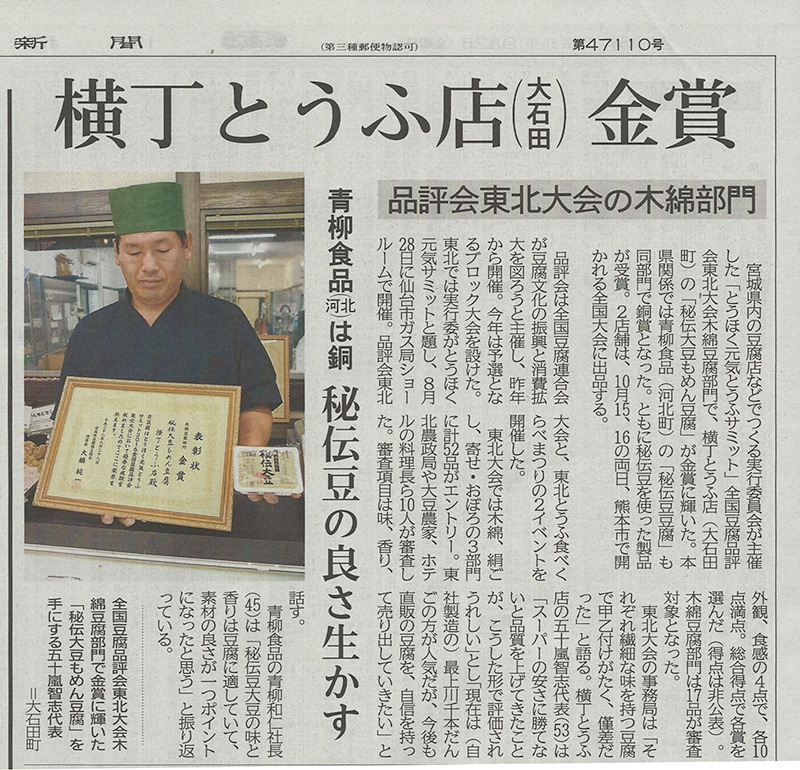 新聞
(第三種郵便物認可)
第47110号
横丁とうふ店(大石田)金賞
品評会東北大会の木綿部門
青柳食品(河北)は銅
秘伝豆の良さ生かす
宮城県内の豆腐店などでつくる実行委員会が主催
した「とうほく元気とうふサミット」全国豆腐品評
会東北大会木綿豆腐部門で、横丁とうふ店(大石田
町)の「秘伝大豆もめん豆腐」が金賞に輝いた。本
県関係では青柳食品(河北町)の「秘伝豆豆腐」も
同部門で銅賞となった。ともに秘伝豆を使った製品
が受賞。2店舗は、10月15、16の両日、熊本市で開
かれる全国大会に出品する。
品評会は全国豆腐連合会
が豆腐文化の振興と消費拡
大を図ろうと主催し、昨年
から開催。今年は予選とな
るブロック大会を設けた。
東北では実行委がとうほく
元気サミットと題し、8月
28日に仙台市ガス局ショー
ルームで開催。品評会東北
大会と、東北とうふ食べく
らべまつりの2イベントを
開催した。
東北大会では木綿、絹ご
し、寄せ・おぼろの3部門
に計52品がエントリー。東
北農政局や大豆農家、ホテ
ルの料理長ら10人が審査し
た。審査項目は味、香り、
外観、食感の4点で、各10
点満点。総合得点で各賞を
選んだ(得点は非公表)。
木綿豆腐部門は17品が審査
対象となった。
東北大会の事務局は「そ
れぞれ繊細な味を持つ豆腐
で甲乙付けがたく、僅差だ
った」と語る。横丁とうふ
店の五十嵐智志代表(53)は
「スーパーの安さに勝てな
いと品質を上げてきたこと
が、こうした形で評価され
うれしい」とし「現在は(自
社製造の)最上川千本だん
ごの方が人気だが、今後も
直販の豆腐を、自信を持っ
て売り出していきたい」と
話す。
青柳食品の青柳和仁社長
(45)は「秘伝豆大豆の味と
香りは豆腐に適していて、
素材の良さが一つポイント
になったと思う」と振り返
っている。
表彰状
金賞
秘伝大豆もめん豆腐
横丁とうふ店殿
大橋純一
秘伝大豆
全国豆腐品評会東北大会木
綿豆腐部門で金賞に輝いた
「秘伝大豆もめん豆腐」を
手にする五十嵐智志代表
=大石田町